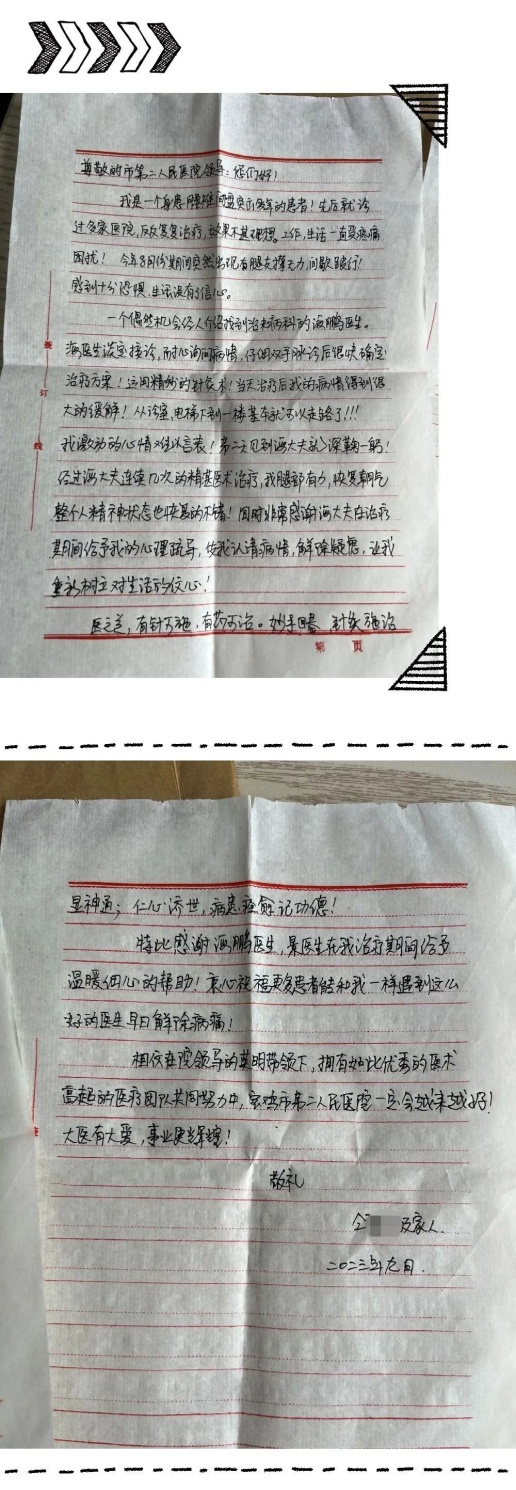 尊敬的市第二人民医院领导：您们好！
我是一个身患腰椎间盘突出多年的患者！先后就诊
过多家医院，反反复复治疗，效果不甚理想。工作，生活一直受病痛
困扰！今年8月份期间突然出现右腿支撑无力，间歇跛行！
感到十分恐惧，生活没有了信心。
一个偶然机会经人介绍找到治未病科的海鹏医生。
海医生淡定接诊，耐心询问病情，仔细双手脉诊后很快确定
治疗方案！运用精妙的针灸术！当天治疗后我的病情得到很
大的缓解！从诊室，电梯下到一楼基本就可以走路了!!!
我激动的心情难以言表！第二次见到海大夫就深鞠一躬！
经过海大夫连续几次的精湛医术治疗，我腿部有力，恢复朝气
整个人精神状态也恢复的不错！同时非常感谢海大夫在治疗
期间给予我的心理疏导，使我认清病情，解除疑虑，让我
重新树立对生活的信心！
医之道，有针可施，有药可治。妙手回春 针灸施治
装
订
线
第 页
显神通；仁心济世，病患痊愈记功德！
特此感谢海鹏医生，景医生在我治疗期间给予
温暖细心的帮助！衷心祝福更多患者能和我一样遇到这么
好的医生早日解除病痛！
相信在院领导的英明带领下，拥有如此优秀的医术
高超的医疗团队共同努力中，宝鸡市第二人民医院一定会越来越好！
大医有大爱，事业更辉煌！
敬礼
及家人
二〇二三年九月.